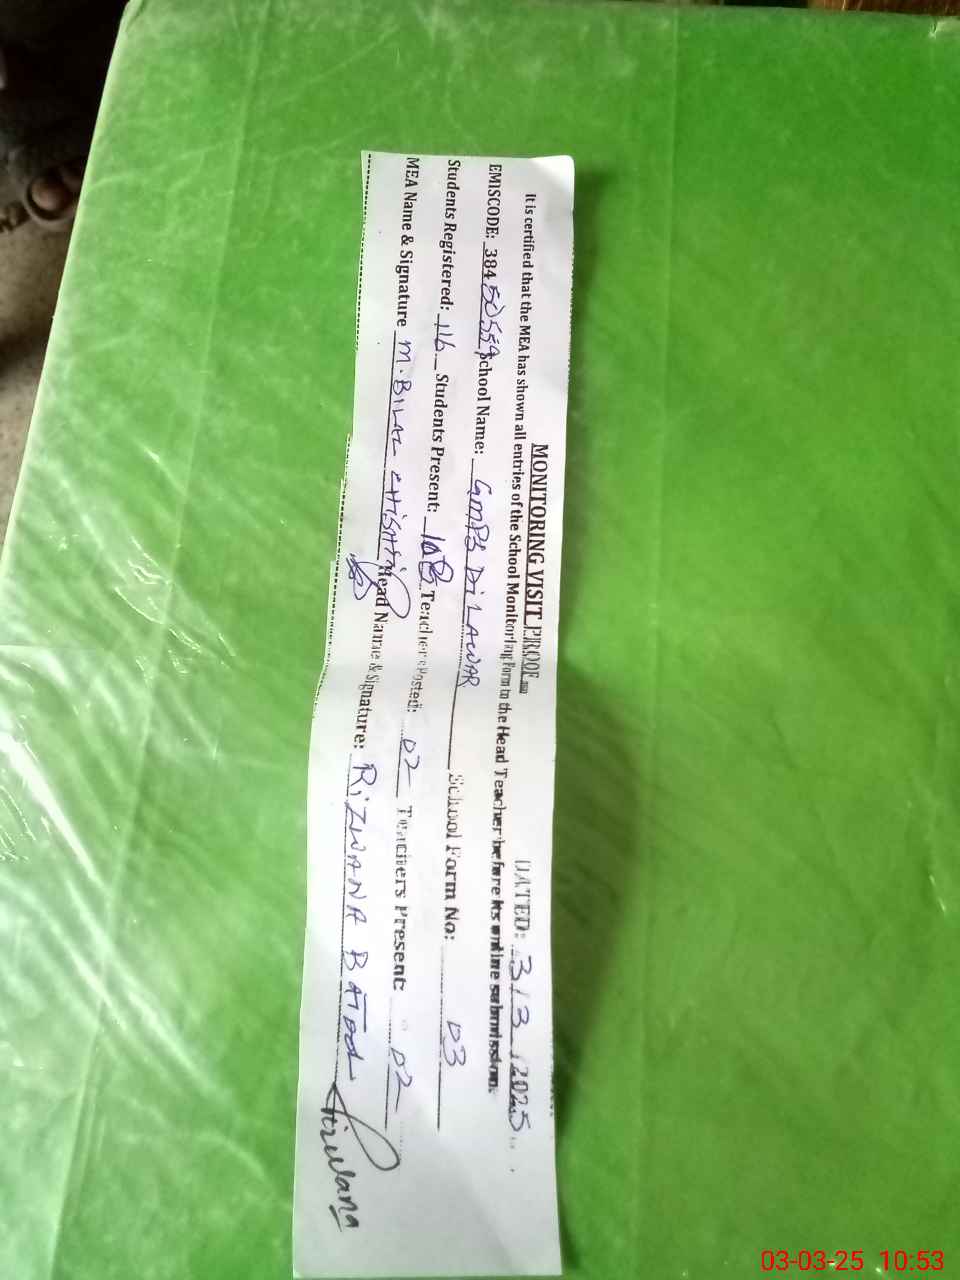 MONITORING VISIT PROOF
DATED: 3/3/2025
It is certified that the MEA has shown all entries of the School Monitoring Form to the Head Teacher before its online submission.
EMISCODE: 38450559 School Name: GMPS DiLAWAR School Form No: 03
Students Registered: 116 Students Present: Teachers Posted: 02 Teachers Present: 02
MEA Name & Signature M. BILAL CHISHTI Head Name & Signature: RIZWANA BATOOL Rizwana
03-03-25 10:53